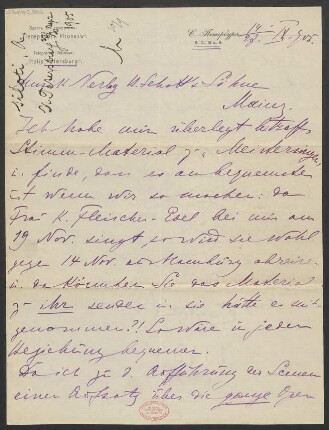 С. Петербургъ
1905
Musik Verlag B. Schott's Söhne
Mainz.
Ich habe mir überlegt betreffs
Stimm-Material z. Meistersinger
u. finde, dass es am bequemsten
ist wenn wir so machen: da
Frau K. Fleischer-Edel bei mir am
19 Nov. singt so wird sie wohl
gegen 14 Nov. aus Hamburg abreisen
u. da könnten Sie das Material
zu ihr senden u. sie hätte es mit
genommen?! So wäre in jeder
Beziehung bequemer.
Da ich zu d. Aufführung der Scenen
einen Aufsatz über die ganze Oper